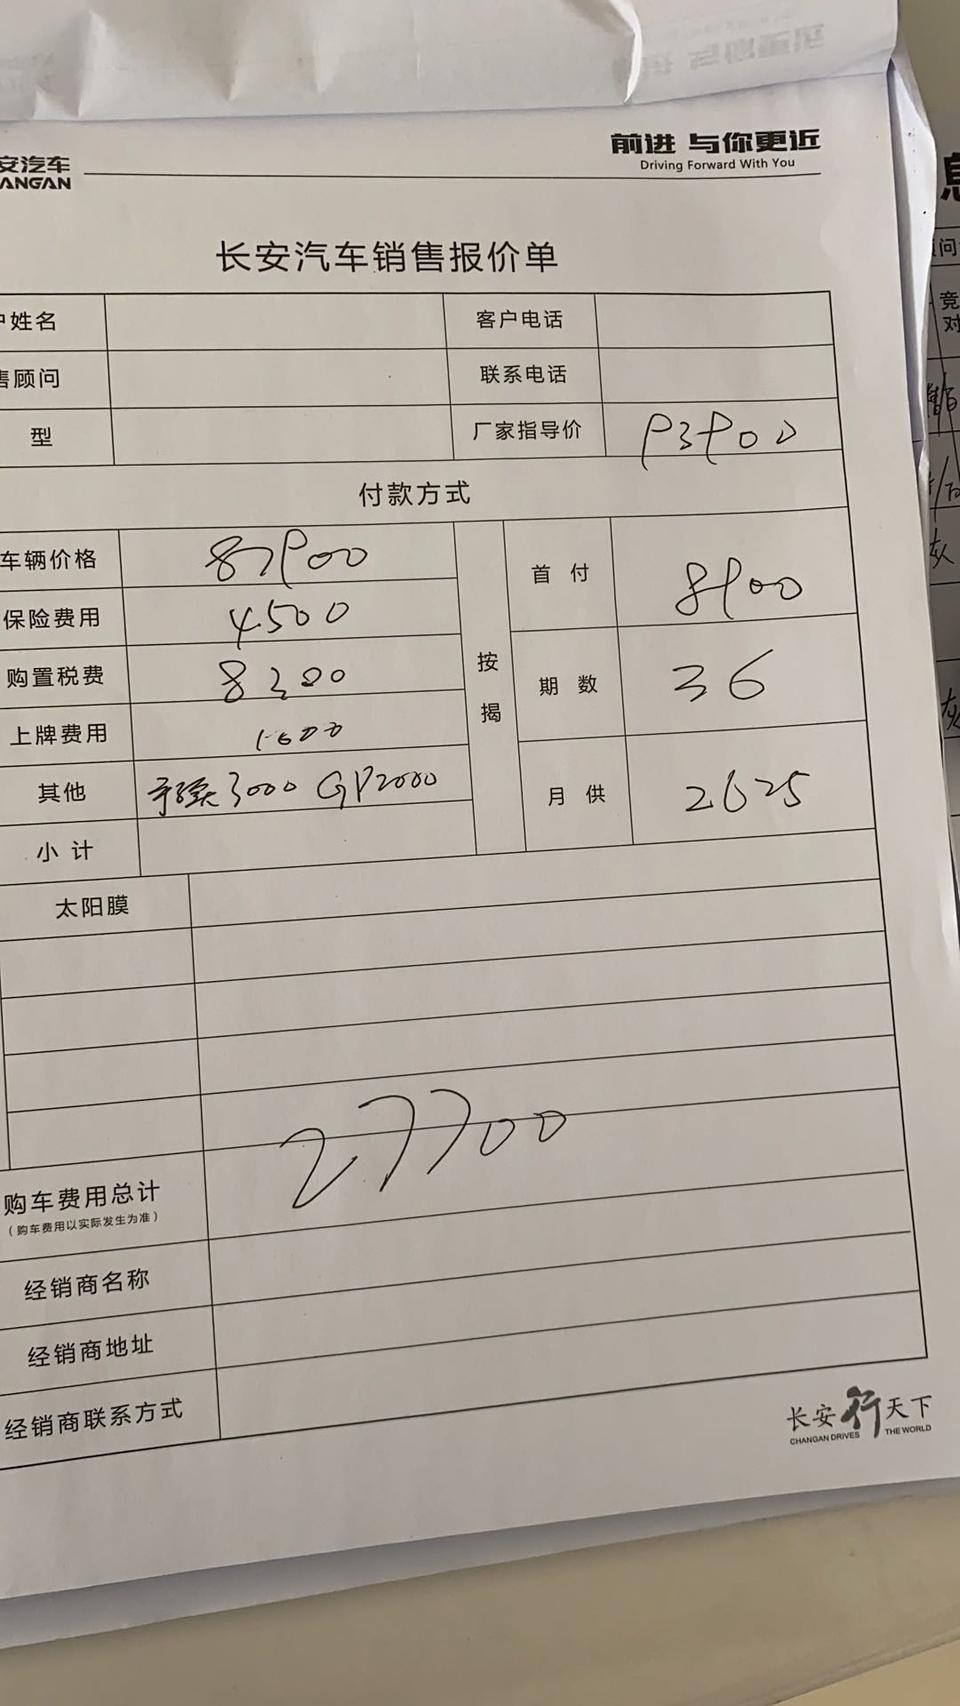 安汽车
ANGAN
前进 与你更近
Driving Forward With You
长安汽车销售报价单
户姓名
客户电话
售顾问
联系电话
型
厂家指导价 93900
付款方式
车辆价格 87900
保险费用 4500
购置税费 8300
上牌费用 1000
其他 手续3000 GP2000
小 计
按揭
首 付 8900
期 数 36
月 供 2625
太阳膜
购车费用总计 27700
(购车费用以实际发生为准)
经销商名称
经销商地址
经销商联系方式
长安行天下
CHANGAN DRIVES THE WORLD
息
问
竞
对
灰